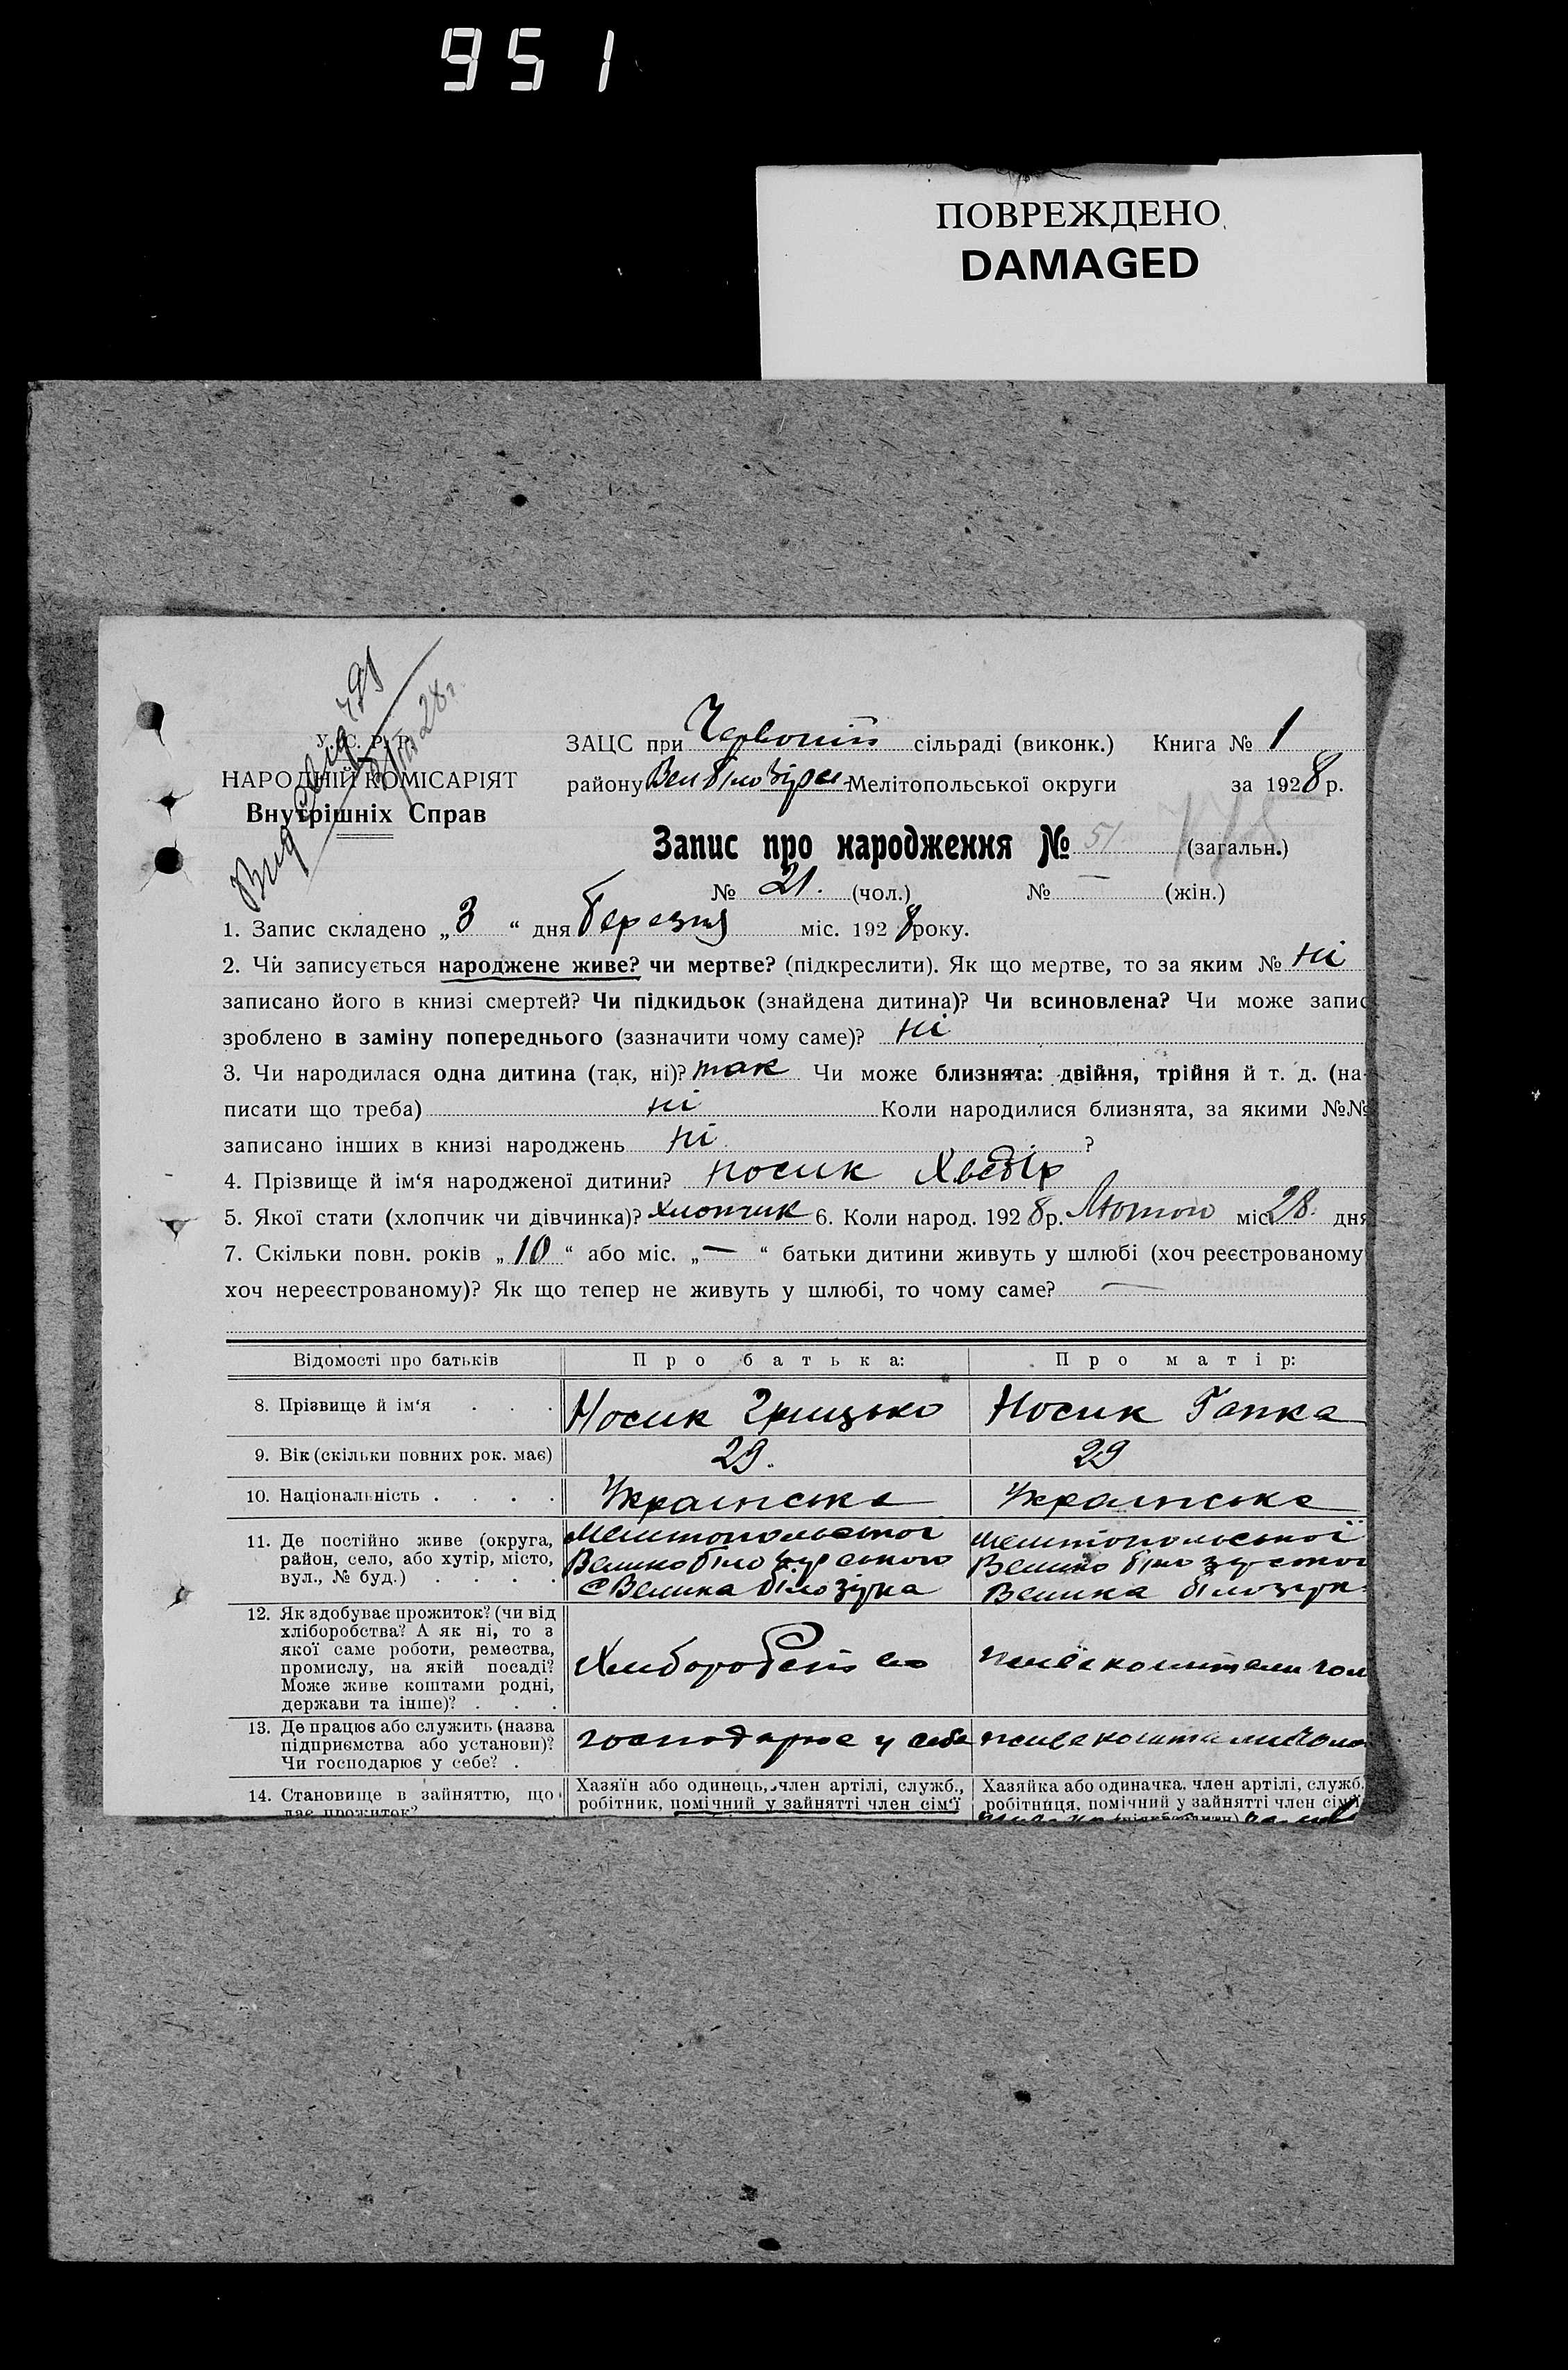 951
ПОВРЕЖДЕНО
DAMAGED
У. С. Р. Р.
НАРОДНІЙ КОМІСАРІЯТ
Внутрішніх Справ
ЗАЦС при Червоній сільраді (виконк.) Книга № 1
району Вел Білозірськ. Мелітопольської округи за 1928 р.
Запис про народження № 51 (загальн.)
№ 21. (чол.) № — (жін.)
1. Запис складено „3“ дня Березня міс. 1928 року.
2. Чи записується народжене живе? чи мертве? (підкреслити). Як що мертве, то за яким № ні
записано його в книзі смертей? Чи підкидьок (знайдена дитина)? Чи всиновлена? Чи може запис
зроблено в заміну попереднього (зазначити чому саме)? ні
3. Чи народилася одна дитина (так, ні)? так Чи може близнята: двійня, трійня й т. д. (на-
писати що треба) ні Коли народилися близнята, за якими №№
записано інших в книзі народжень ні ?
4. Прізвище й ім‘я народженої дитини? Носик Хведір
5. Якої стати (хлопчик чи дівчинка)? хлопчик 6. Коли народ. 1928 р. Лютого міс. 28. дня
7. Скільки повн. років „10“ або міс. „—“ батьки дитини живуть у шлюбі (хоч реєстрованому
хоч нереєстрованому)? Як що тепер не живуть у шлюбі, то чому саме? —
Відомості про батьків Про батька: Про матір:
8. Прізвище й ім‘я . . . Носик Грицько Носик Гапка
9. Вік (скільки повних рок. має) 29. 29
10. Національність . . . . Українська Українська
11. Де постійно живе (округа, Мелітопольської Мелітопольської
район, село, або хутір, місто, Великобілозірського Великобілозірської
вул., № буд.) . . . . С Велика білозірка Велика білозірк
12. Як здобуває прожиток? (чи від
хліборобства? А як ні, то з
якої саме роботи, ремества,
промислу, на якій посаді? Хліборобство живе коштами чол
Може живе коштами родні,
держави та інше)? . . .
13. Де працює або служить (назва
підприємства або установи)? господарює у себе живе коштами чоло
Чи господарює у себе? .
14. Становище в зайняттю, що Хазяїн або одинець, член артілі, служб., Хазяйка або одиначка, член артілі, служб.
дає прожиток? робітник, помічний у зайнятті член сім‘ї робітниця, помічний у зайнятті член сім‘ї